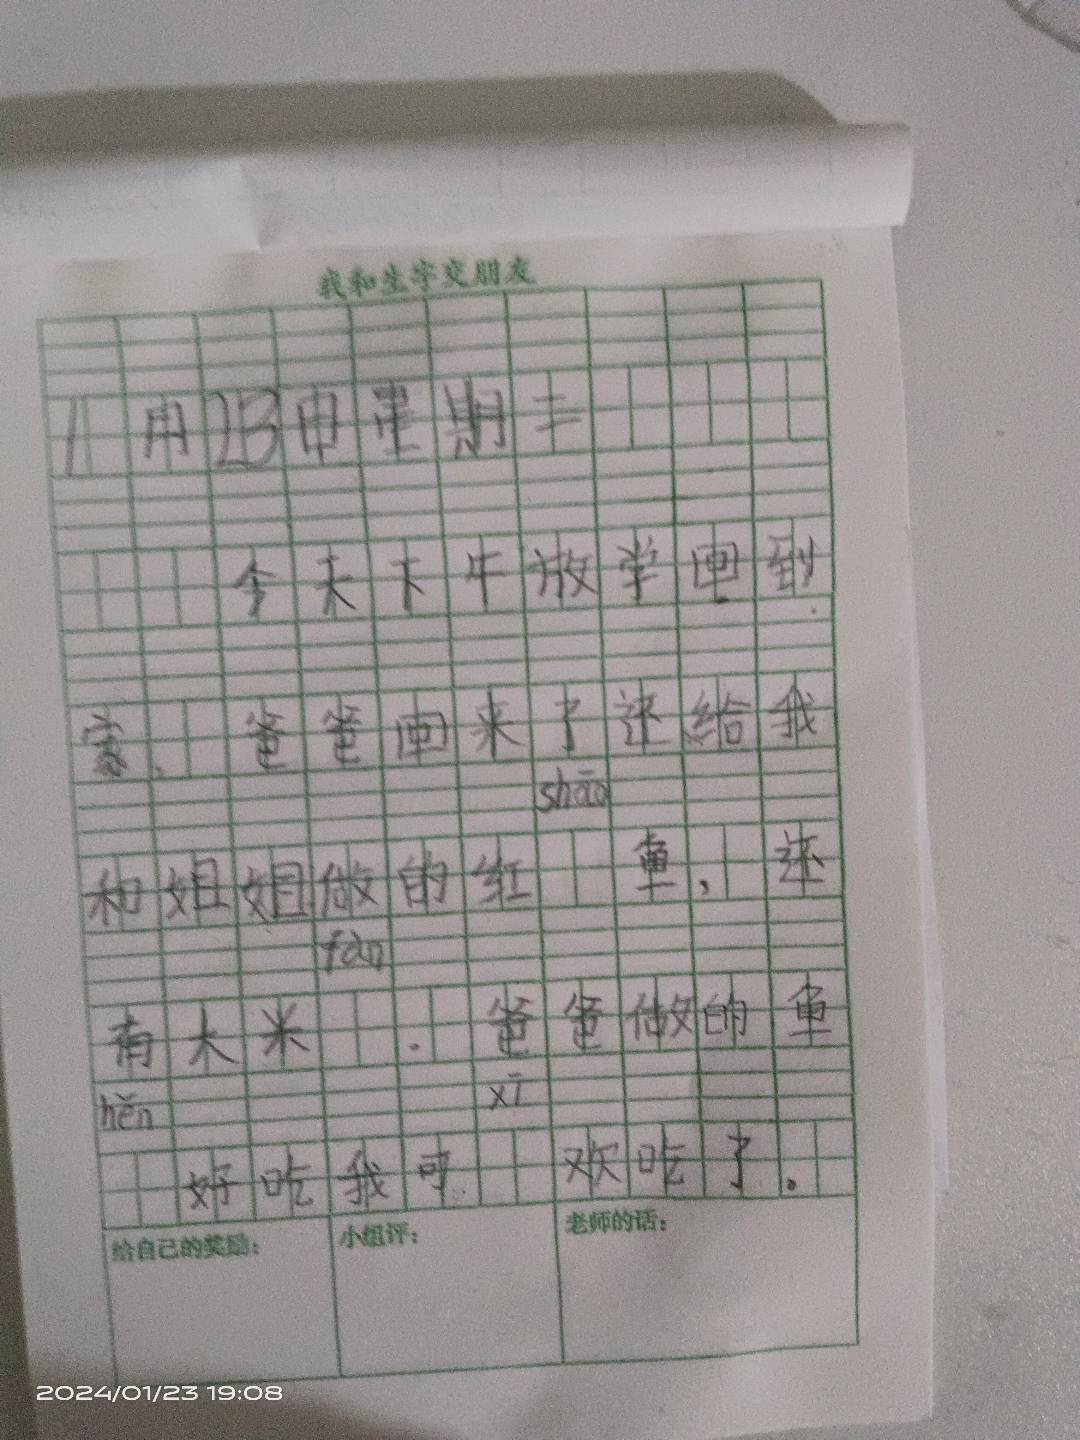 我和生字交朋友
11月23日星期二
今天下午放学回到
家、爸爸回来了还给我
shāo
和姐姐做的红 鱼,还
fàn
有大米 .爸爸做的鱼
hěn xǐ
好吃我可 欢吃了。
给自己的奖励: 小组评: 老师的话:
2024/01/23 19:08